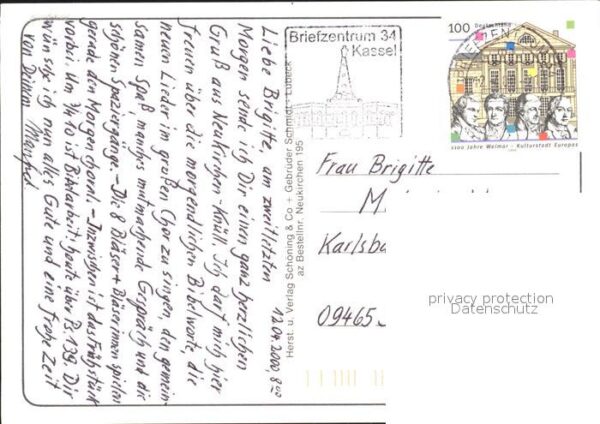 12.04.2000, 8⁰⁰
Liebe Brigitte, am zweitletzten
Morgen sende ich Dir einen ganz herzlichen
Gruß aus Neukirchen-Knüll. Ich darf mich hier
freuen über die morgendlichen Bibelworte, die
neuen Lieder im großen Chor zu singen, den gemein-
samen Spaß, manches mutmachende Gespräch und die
schönen Spaziergänge. – Die 8 Bläser + Bläserinnen spielen
gerade den Morgenchoral. – Inzwischen ist das Frühstück
vorbei. Um ¾10 ist Bibelarbeit: heute über Ps. 139. Dir
wünsche ich nun alles Gute und eine frohe Zeit
von Deinem Manfred
Herst. u. Verlag Schöning & Co + Gebrüder Schmidt · Lübeck
az Bestellnr. Neukirchen 195
Briefzentrum 34
Kassel
100
Deutschland
1100 Jahre Weimar - Kulturstadt Europas
Frau Brigitte
M
Karlsba
09465
privacy protection
Datenschutz